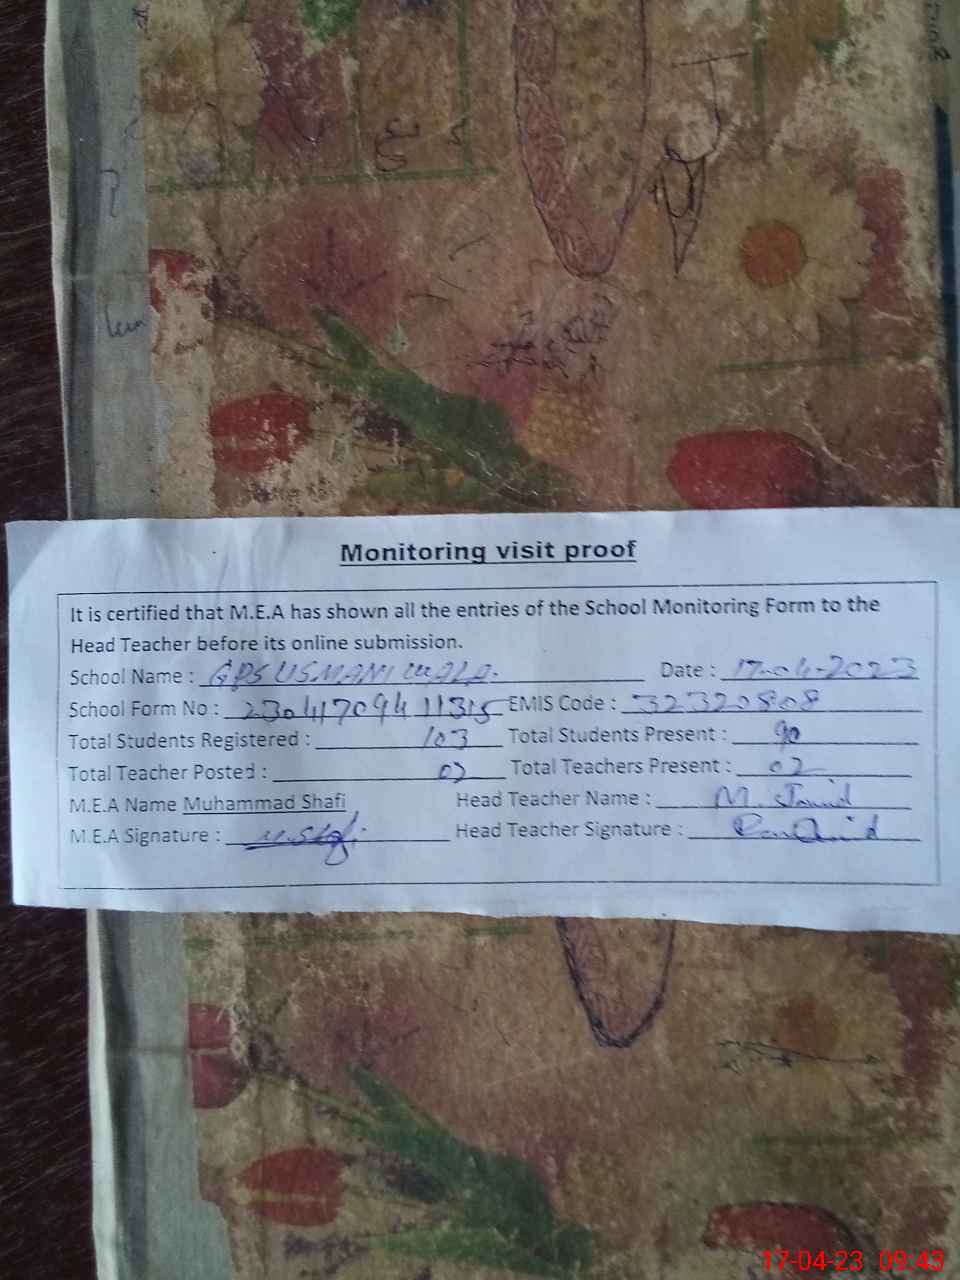 Monitoring visit proof
It is certified that M.E.A has shown all the entries of the School Monitoring Form to the
Head Teacher before its online submission.
School Name : GPS USMANI WALA. Date : 17-04-2023
School Form No : 230417094 11315 EMIS Code : 32320808
Total Students Registered : 103 Total Students Present : 90
Total Teacher Posted : 02 Total Teachers Present : 02
M.E.A Name Muhammad Shafi Head Teacher Name : M.
M.E.A Signature : Head Teacher Signature :
17-04-23 09:43